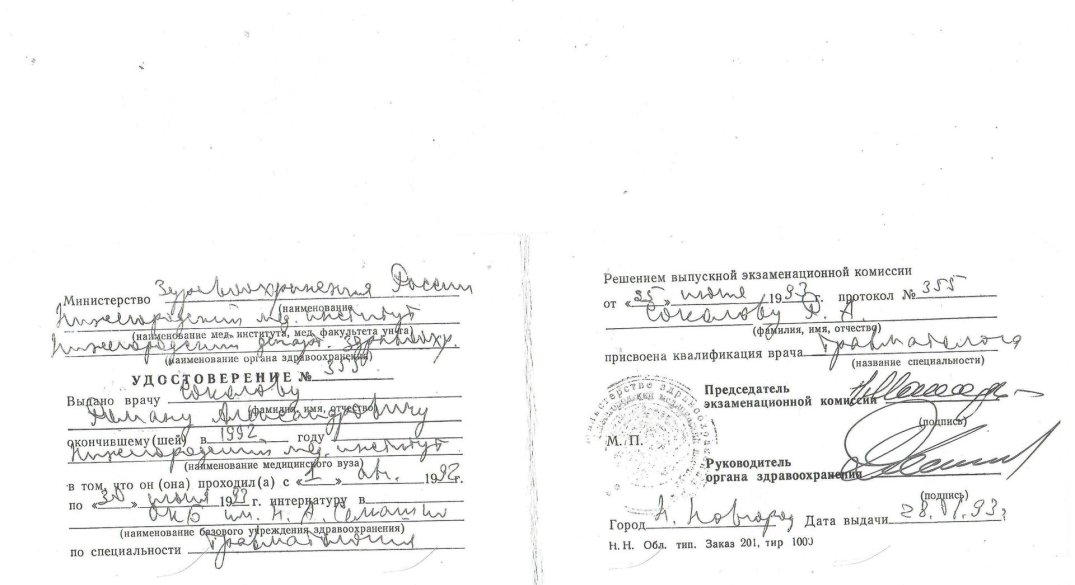 Министерство Здравоохранения России
(наименование
Нижегородский мед. институт
(наименование мед. института, мед. факультета ун-та)
Нижегородский департ. здравоохр.
(наименование органа здравоохранения)
УДОСТОВЕРЕНИЕ №
Выдано врачу Соколову
Роману Александровичу
(фамилия, имя, отчество)
окончившему(шей) в 1992 году
Нижегородский мед. институт
(наименование медицинского вуза)
в том, что он (она) проходил(а) с «1» авг. 1992г.
по «30» июня 1993 г. интернатуру в
ОКБ им. Н. А. Семашко
(наименование базового учреждения здравоохранения)
по специальности Травматология
Решением выпускной экзаменационной комиссии
от «25» июня 1993 г. протокол № 355
Соколову Р. А.
(фамилия, имя, отчество)
присвоена квалификация врача Травматолога
(название специальности)
Председатель
экзаменационной комиссии
(подпись)
М. П.
Руководитель
органа здравоохранения
(подпись)
Город Н. Новгород Дата выдачи 28.07.93г
Н. Н. Обл. тип. Заказ 201, тир 1000